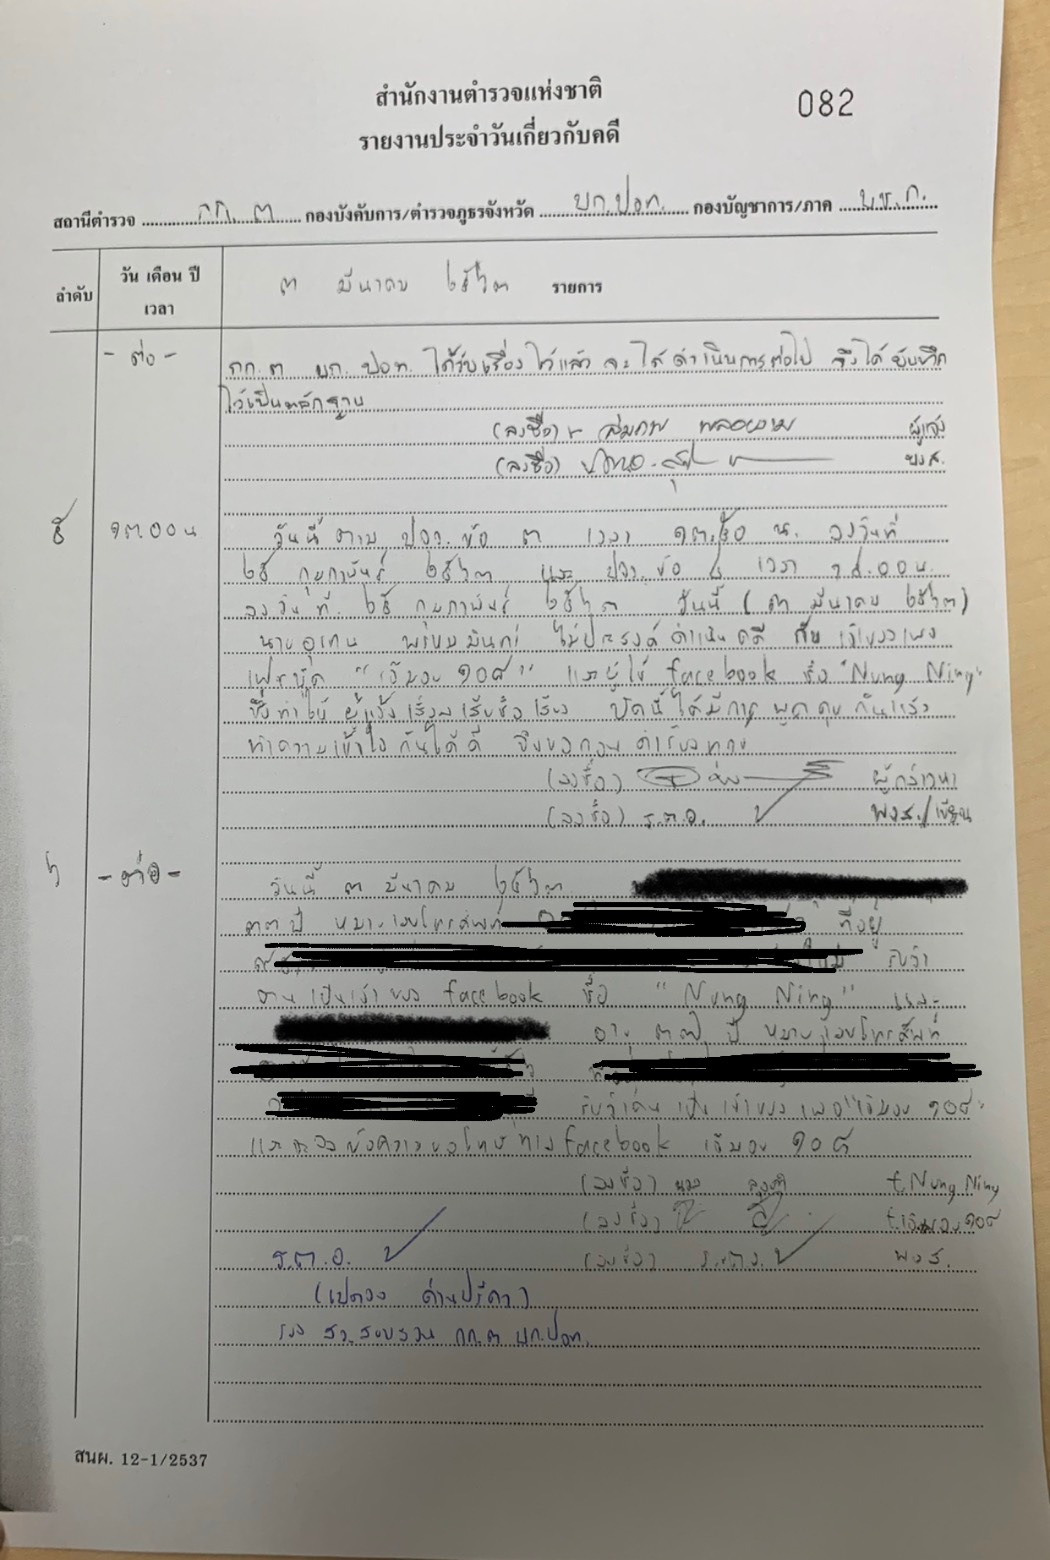 สำนักงานตำรวจแห่งชาติ
082
รายงานประจำวันเกี่ยวกับคดี
สถานีตำรวจ กก. ๓ กองบังคับการ/ตำรวจภูธรจังหวัด บก.ปอท. กองบัญชาการ/ภาค บช.ก.
ลำดับ วัน เดือน ปี เวลา ๓ มีนาคม ๒๕๖๓ รายการ
- ต่อ - กก.๓ บก. ปอท. ได้รับเรื่องไว้แล้ว จะได้ดำเนินการต่อไป จึงได้
ไว้เป็นหลักฐาน
(ลงชื่อ) ผู้แจ้ง
(ลงชื่อ) พงส.
๕ ๑๓.๐๐ น วันนี้ ตาม ปจว. ข้อ ๓ เวลา ๑๓.๕๐ น. ลงวันที่
๒๕ กุมภาพันธ์ ๒๕๖๓ และ ปจว. ข้อ เวลา
ลงวันที่ ๒๕ กุมภาพันธ์ ๒๕๖๓ วันนี้ (๓ มีนาคม ๒๕๖๓)
นาย ไม่ประสงค์ดำเนินคดี กับ เจ้าของเพจ
เฟซบุ๊ค "เจ๊มอย ๑๐๘" และผู้ใช้ facebook ชื่อ "Nung Ning"
ซึ่งทำให้ ผู้แจ้งเสียชื่อเสียง บัดนี้ได้มีการ พูดคุย กันแล้ว
ทำความเข้าใจ กันได้ดี จึงขอถอน คำร้องทุกข์
(ลงชื่อ) ผู้กล่าวหา
(ลงชื่อ) ร.ต.อ. พงส./เขียน
๖ - ต่อ - วันนี้ ๓ มีนาคม ๒๕๖๓
๓๓ ปี หมายเลขโทรศัพท์ ที่อยู่
รับว่า
ตนเป็นเจ้าของ facebook ชื่อ "Nung Ning" และ
อายุ ปี หมายเลขโทรศัพท์
รับว่าตน เป็นเจ้าของ เพจ "เจ๊มอย ๑๐๘"
และจะลงข้อความขอโทษทาง facebook เจ๊มอย ๑๐๘
(ลงชื่อ) f.Nung Ning
(ลงชื่อ) f.เจ๊มอย ๑๐๘
ร.ต.อ. (ลงชื่อ) ร.ต.อ. พงส.
รอง สว.สอบสวน กก.๓ บก.ปอท.
สนผ. 12-1/2537